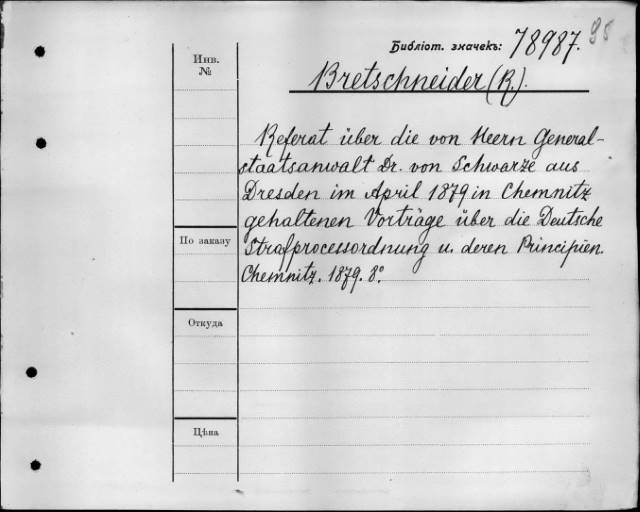 Библіот. значекъ: 78987. 95
Инв.
№
Bretschneider (R.).
Referat über die von Herrn General-
staatsanwalt Dr. von Schwarze aus
Dresden im April 1879 in Chemnitz
gehaltenen Vorträge über die Deutsche
Strafprocessordnung u. deren Principien.
Chemnitz. 1879. 8º.
По заказу
Откуда
Цѣна